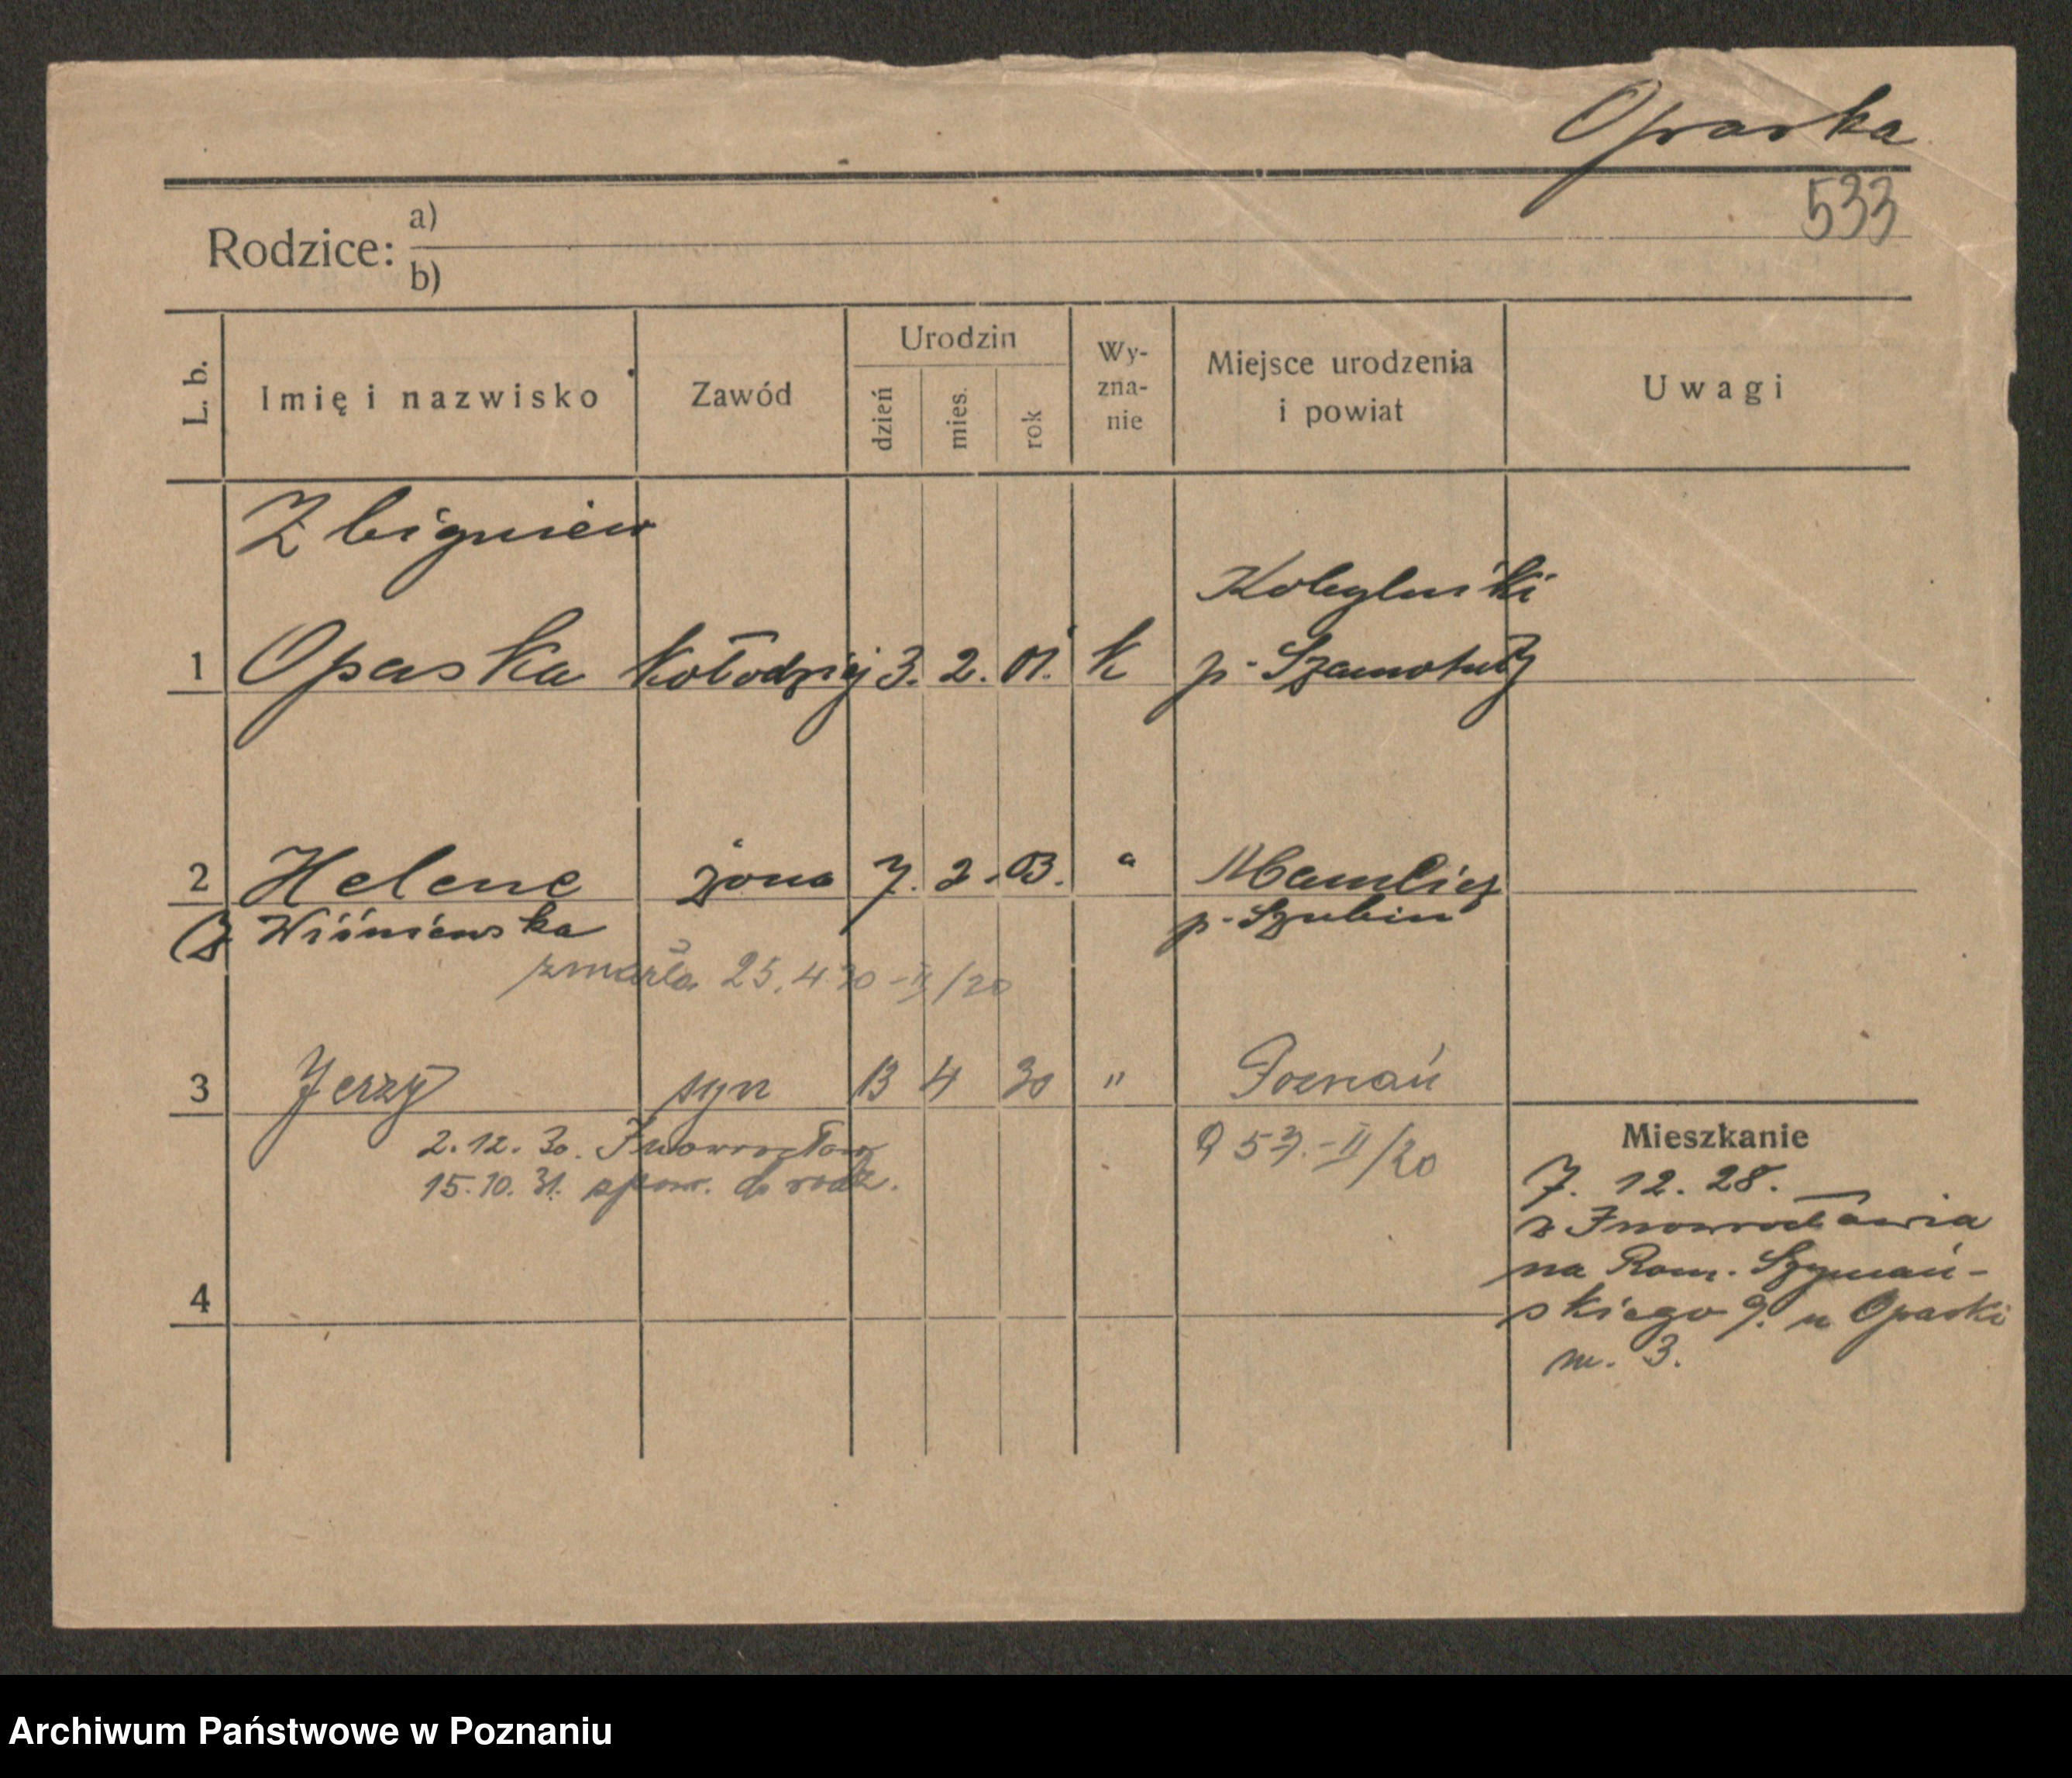 Opaska
533
Rodzice: a)
b)
L. b. Imię i nazwisko Zawód Urodzin dzień mies. rok Wyznanie Miejsce urodzenia i powiat Uwagi
Zbigniew
Kobylniki
1 Opaska kołodziej 3. 2. 01. k p. Szamotuły
2 Helene żona 7. 2. 03. " Mamlicz
(z Wiśniewska p. Szubin
zmarła 25.4.30 - II/20
3 Jerzy syn 13 4 30 " Poznań
2.12.30. Inowrocław
15.10.31. spow. do rodz.
II/20
4
Mieszkanie
7. 12. 28.
z Inowrocławia
na Rom. Szymań-
skiego 9. u Opaski
m. 3.
Archiwum Państwowe w Poznaniu